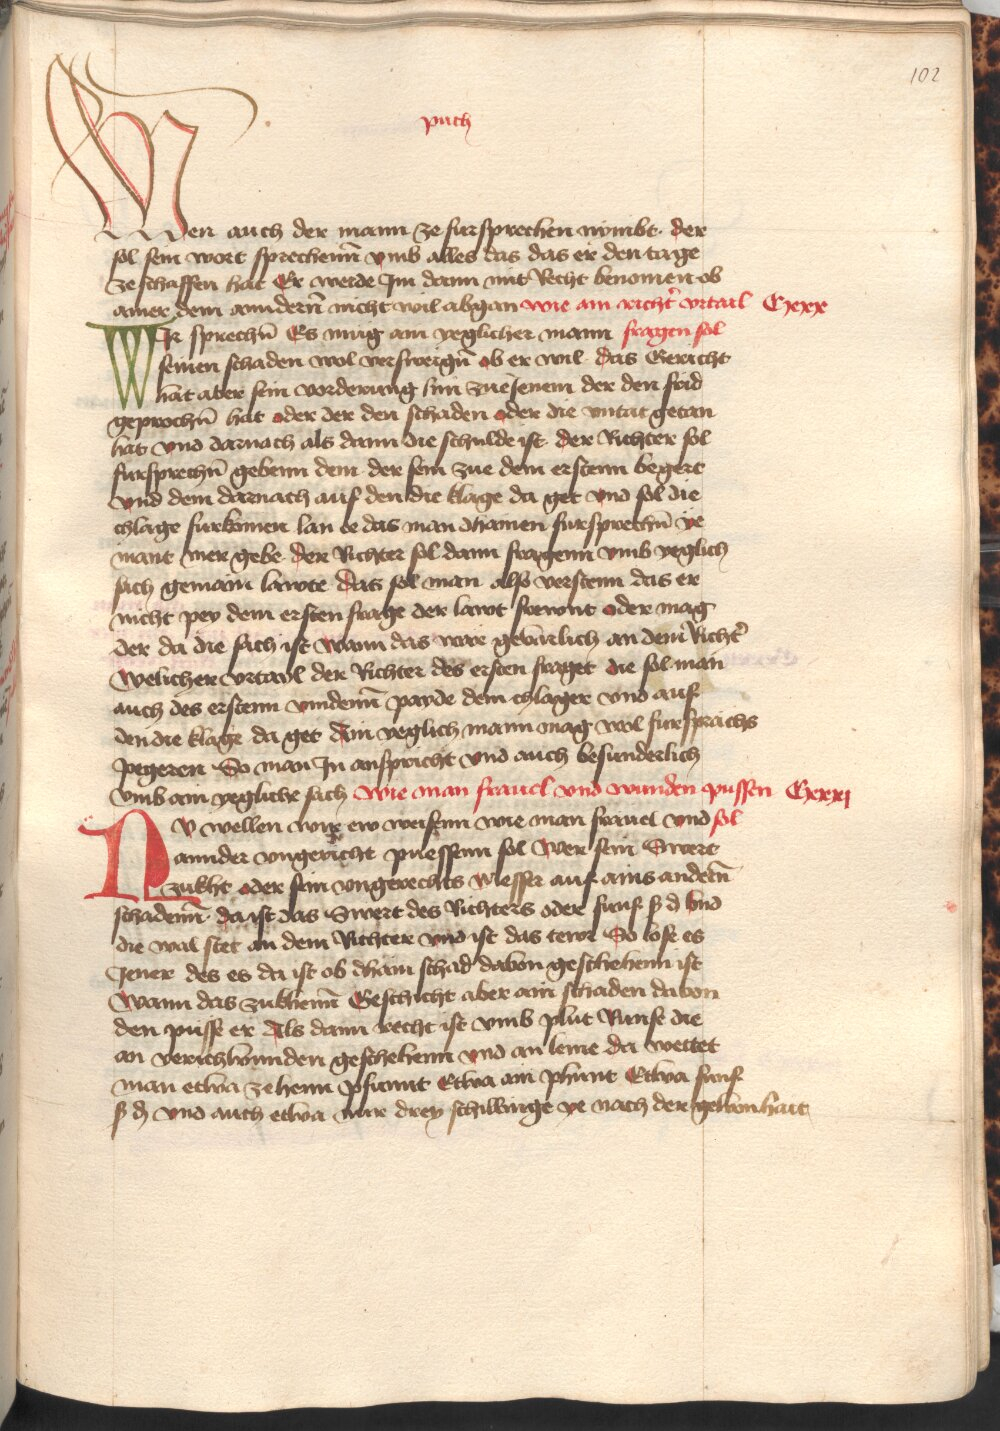 102
puch
Wen auch der mann ze fursprechen nymbt · der
sol sein wort sprechenn̄ vmb alles das das er den tage
ze schaffen hat Er werde Im dann mit Recht benomen ob
ainer dem anndern̄ nicht wil abgan wie ain richt͛ vrtail Cxxx
WIr sprechn̄ Es mug ain yeglicher mann fragen sol
seinen schaden wol versweign̄ ob er wil · das Gericht
hat aber sein vorderung hin zue Jenem der den frid
geprochn̄ hat oder der den schaden oder die vntat getan
hat vnd darnach als dann die schulde ist · der Richter sol
fursprechn̄ gebenn dem · der sein zue dem erstenn begert
vnd dem darnach auf den die klage da get vnd sol die
chlage furkomen lan ee das man dhainen fursprechn̄ ye
mant mer gebe · der Richter sol dann fragenn vmb yeglich
sach gemain lawte · das sol man also verstenn das er
nicht pey dem ersten frage der lawt frewnt oder mag
der da die sach ist wann das wäre geuärlich an dem Richt͛
Welicher vrtayl der Richter des ersten fraget die sol man
auch des erstenn vindenn̄ payde dem chlager vnd auf
den die klage da get Ain yeglich mann mag wol fursprächs
pegeren · So man In anspricht vnd auch besunderlich
vmb ain yegliche sach Wie man frauel vnd wunden pussen Cxxxj
NV wellen wir ew weisenn wie man frauel vnd sol
annder vngericht puessenn sol Wer sein Swert
zukht oder sein vngerechts Messer auf ains andern̄
schadenn̄ · da ist das Swert des Richters oder funf ß d vnd
die wal stet an dem Richter vnd ist das tewr So lose es
Jener des es da ist ob dhäin schad dauon geschehenn ist
Wann das zukhenn̄ Geschicht aber ain schaden dauon
den pusse er Als dann recht ist vmb plut Runse die
an verichwunden geschehenn vnd an leme da wettet
man etwa zehenn pfunnt Etwa ain phunt Etwa funf
ß d vnd auch etwa nur drey schillinge ye nach der gewonhait